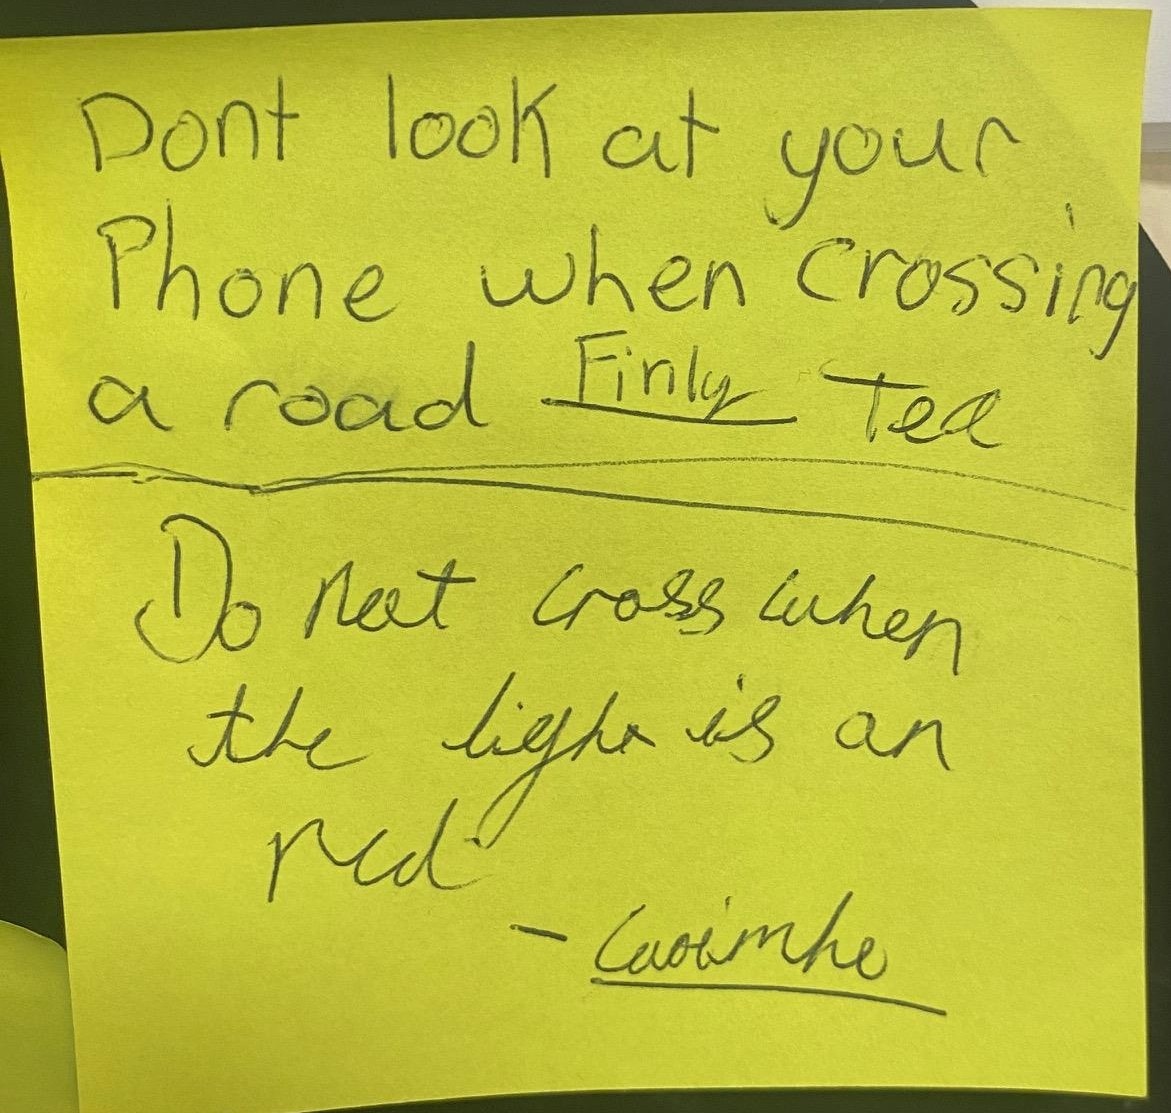 Dont look at your
Phone when crossing
a road Finly Ted
Do not cross when
the light is on
red
- Caoimhe